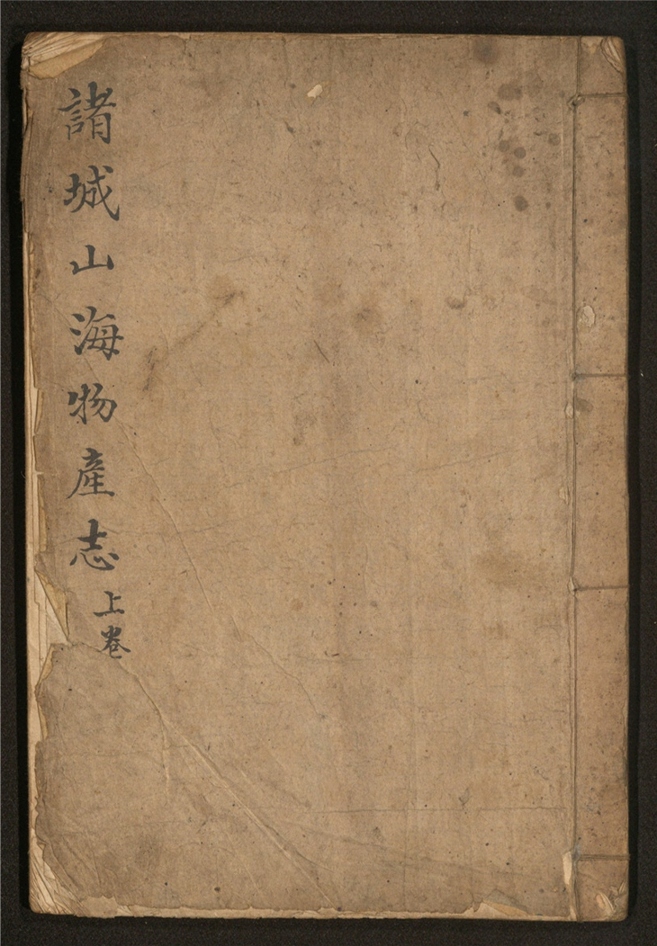 諸城山海物產志
上卷